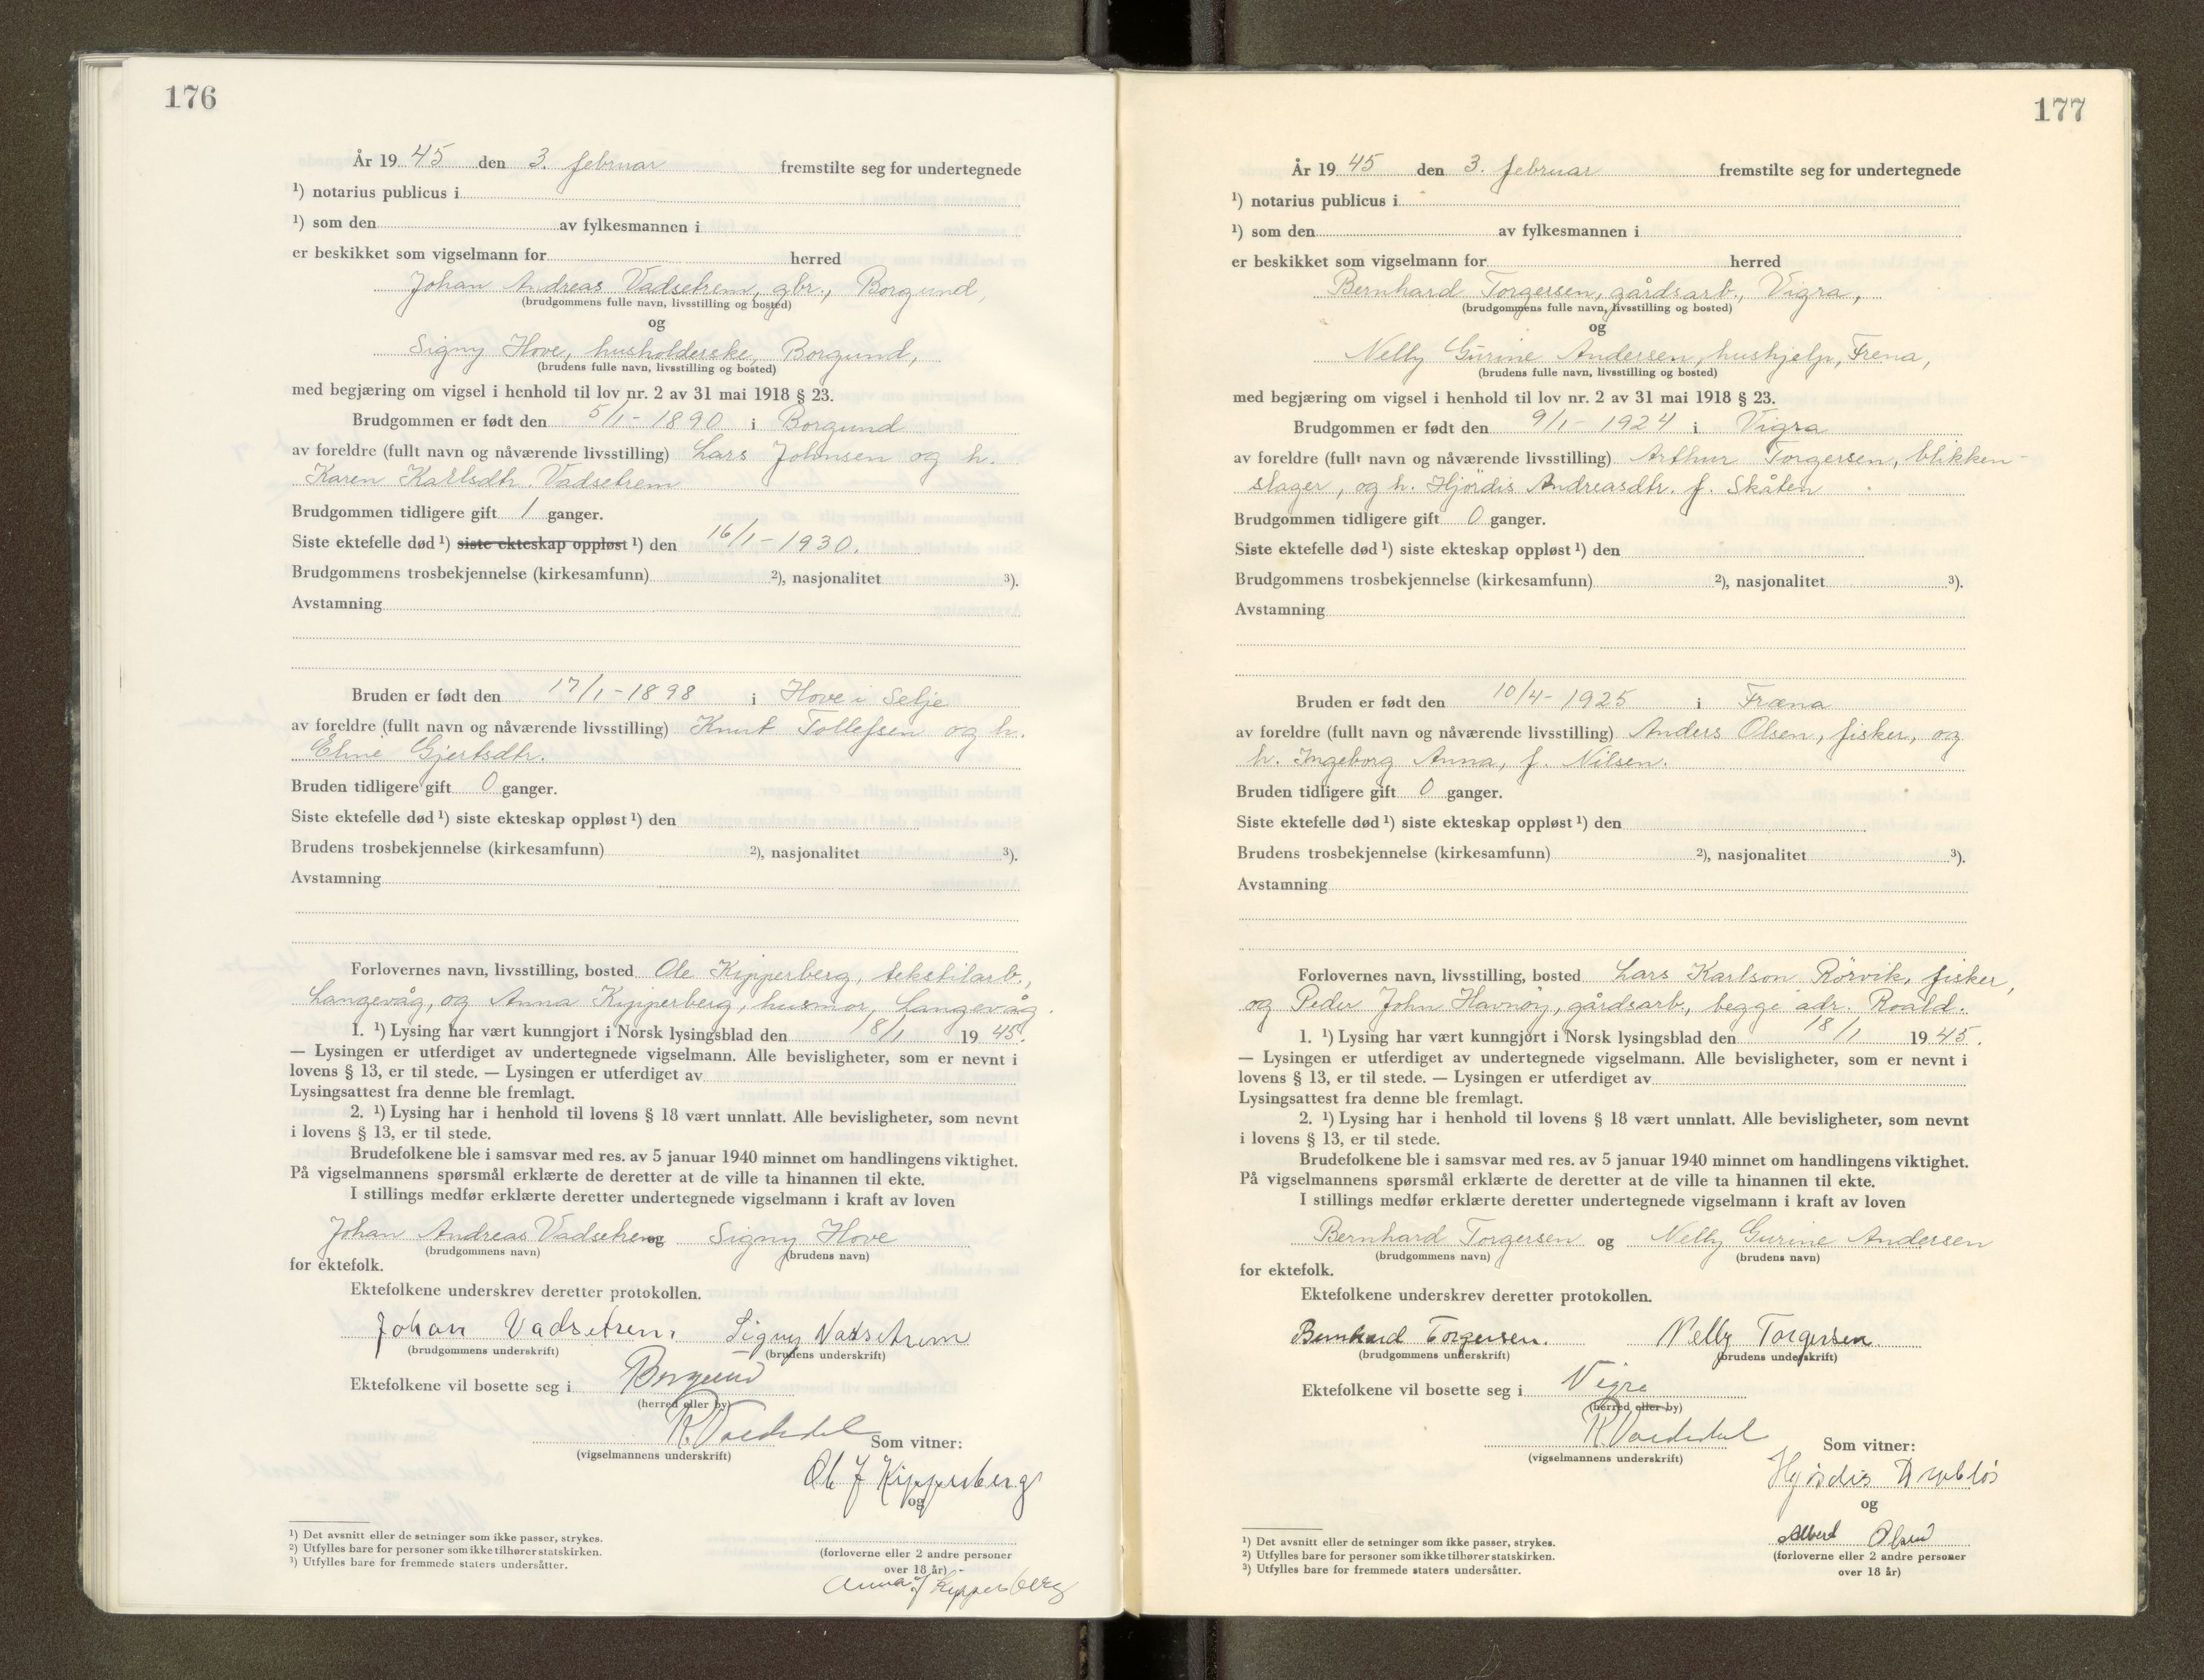 176
År 19 45 den 3. februar fremstilte seg for undertegnede
¹) notarius publicus i
¹) som den av fylkesmannen i
er beskikket som vigselmann for herred
Johan Andreas Vadsetrem, gbr., Borgund,
(brudgommens fulle navn, livsstilling og bosted)
og
Signy Hove, husholderske, Borgund,
(brudens fulle navn, livsstilling og bosted)
med begjæring om vigsel i henhold til lov nr. 2 av 31 mai 1918 § 23.
Brudgommen er født den 5/1 - 1890 i Borgund
av foreldre (fullt navn og nåværende livsstilling) Lars Johnsen og h.
Karen Karlsdtr. Vadsetrem
Brudgommen tidligere gift 1 ganger.
Siste ektefelle død ¹) siste ekteskap oppløst ¹) den 16/1 - 1930.
Brudgommens trosbekjennelse (kirkesamfunn) ²), nasjonalitet ³).
Avstamning
Bruden er født den 17/1 - 1898 i Hove i Selje
av foreldre (fullt navn og nåværende livsstilling) Knut Tollefsen og h.
Eline Gjertsdtr.
Bruden tidligere gift 0 ganger.
Siste ektefelle død ¹) siste ekteskap oppløst ¹) den
Brudens trosbekjennelse (kirkesamfunn) ²), nasjonalitet ³).
Avstamning
Forlovernes navn, livsstilling, bosted Ole Kipperberg, tekstilarb.,
Langevåg, og Anna Kipperberg, husmor, Langevåg.
1. ¹) Lysing har vært kunngjort i Norsk lysingsblad den 18/1 19 45.
— Lysingen er utferdiget av undertegnede vigselmann. Alle bevisligheter, som er nevnt i
lovens § 13, er til stede. — Lysingen er utferdiget av
Lysingsattest fra denne ble fremlagt.
2. ¹) Lysing har i henhold til lovens § 18 vært unnlatt. Alle bevisligheter, som nevnt
i lovens § 13, er til stede.
Brudefolkene ble i samsvar med res. av 5 januar 1940 minnet om handlingens viktighet.
På vigselmannens spørsmål erklærte de deretter at de ville ta hinannen til ekte.
I stillings medfør erklærte deretter undertegnede vigselmann i kraft av loven
Johan Andreas Vadsetrem og Signy Hove
(brudgommens navn) (brudens navn)
for ektefolk.
Ektefolkene underskrev deretter protokollen.
Johan Vadsetrem. Signy Vadsetrem
(brudgommens underskrift) (brudens underskrift)
Ektefolkene vil bosette seg i Borgund
(herred eller by)
(vigselmannens underskrift) Som vitner:
Ole J Kipperberg
og
(forloverne eller 2 andre personer
over 18 år)
Anna J Kipperberg
¹) Det avsnitt eller de setninger som ikke passer, strykes.
²) Utfylles bare for personer som ikke tilhører statskirken.
³) Utfylles bare for fremmede staters undersåtter.
177
År 19 45 den 3. februar fremstilte seg for undertegnede
¹) notarius publicus i
¹) som den av fylkesmannen i
er beskikket som vigselmann for herred
Bernhard Torgersen, gårdsarb., Vigra,
(brudgommens fulle navn, livsstilling og bosted)
og
Nelly Gurine Andersen, hushjelp, Frena,
(brudens fulle navn, livsstilling og bosted)
med begjæring om vigsel i henhold til lov nr. 2 av 31 mai 1918 § 23.
Brudgommen er født den 9/1 - 1924 i Vigra
av foreldre (fullt navn og nåværende livsstilling) Arthur Torgersen, blikken-
slager, og h. Hjördis Andreasdtr. f. Skåten
Brudgommen tidligere gift 0 ganger.
Siste ektefelle død ¹) siste ekteskap oppløst ¹) den
Brudgommens trosbekjennelse (kirkesamfunn) ²), nasjonalitet ³).
Avstamning
Bruden er født den 10/4 - 1925 i Fræna
av foreldre (fullt navn og nåværende livsstilling) Anders Olsen, fisker, og
h. Ingeborg Anna, f. Nilsen.
Bruden tidligere gift 0 ganger.
Siste ektefelle død ¹) siste ekteskap oppløst ¹) den
Brudens trosbekjennelse (kirkesamfunn) ²), nasjonalitet ³).
Avstamning
Forlovernes navn, livsstilling, bosted Lars Karlson Rörvik, fisker,
og Peder John Havnöy, gårdsarb., begge adr. Roald.
1. ¹) Lysing har vært kunngjort i Norsk lysingsblad den 18/1 19 45.
— Lysingen er utferdiget av undertegnede vigselmann. Alle bevisligheter, som er nevnt i
lovens § 13, er til stede. — Lysingen er utferdiget av
Lysingsattest fra denne ble fremlagt.
2. ¹) Lysing har i henhold til lovens § 18 vært unnlatt. Alle bevisligheter, som nevnt
i lovens § 13, er til stede.
Brudefolkene ble i samsvar med res. av 5 januar 1940 minnet om handlingens viktighet.
På vigselmannens spørsmål erklærte de deretter at de ville ta hinannen til ekte.
I stillings medfør erklærte deretter undertegnede vigselmann i kraft av loven
Bernhard Torgersen og Nelly Gurine Andersen
(brudgommens navn) (brudens navn)
for ektefolk.
Ektefolkene underskrev deretter protokollen.
Bernhard Torgersen. Nelly Torgersen
(brudgommens underskrift) (brudens underskrift)
Ektefolkene vil bosette seg i Vigra
(herred eller by)
(vigselmannens underskrift) Som vitner:
Hjördis
og
Albert Olsen
(forloverne eller 2 andre personer
over 18 år)
¹) Det avsnitt eller de setninger som ikke passer, strykes.
²) Utfylles bare for personer som ikke tilhører statskirken.
³) Utfylles bare for fremmede staters undersåtter.